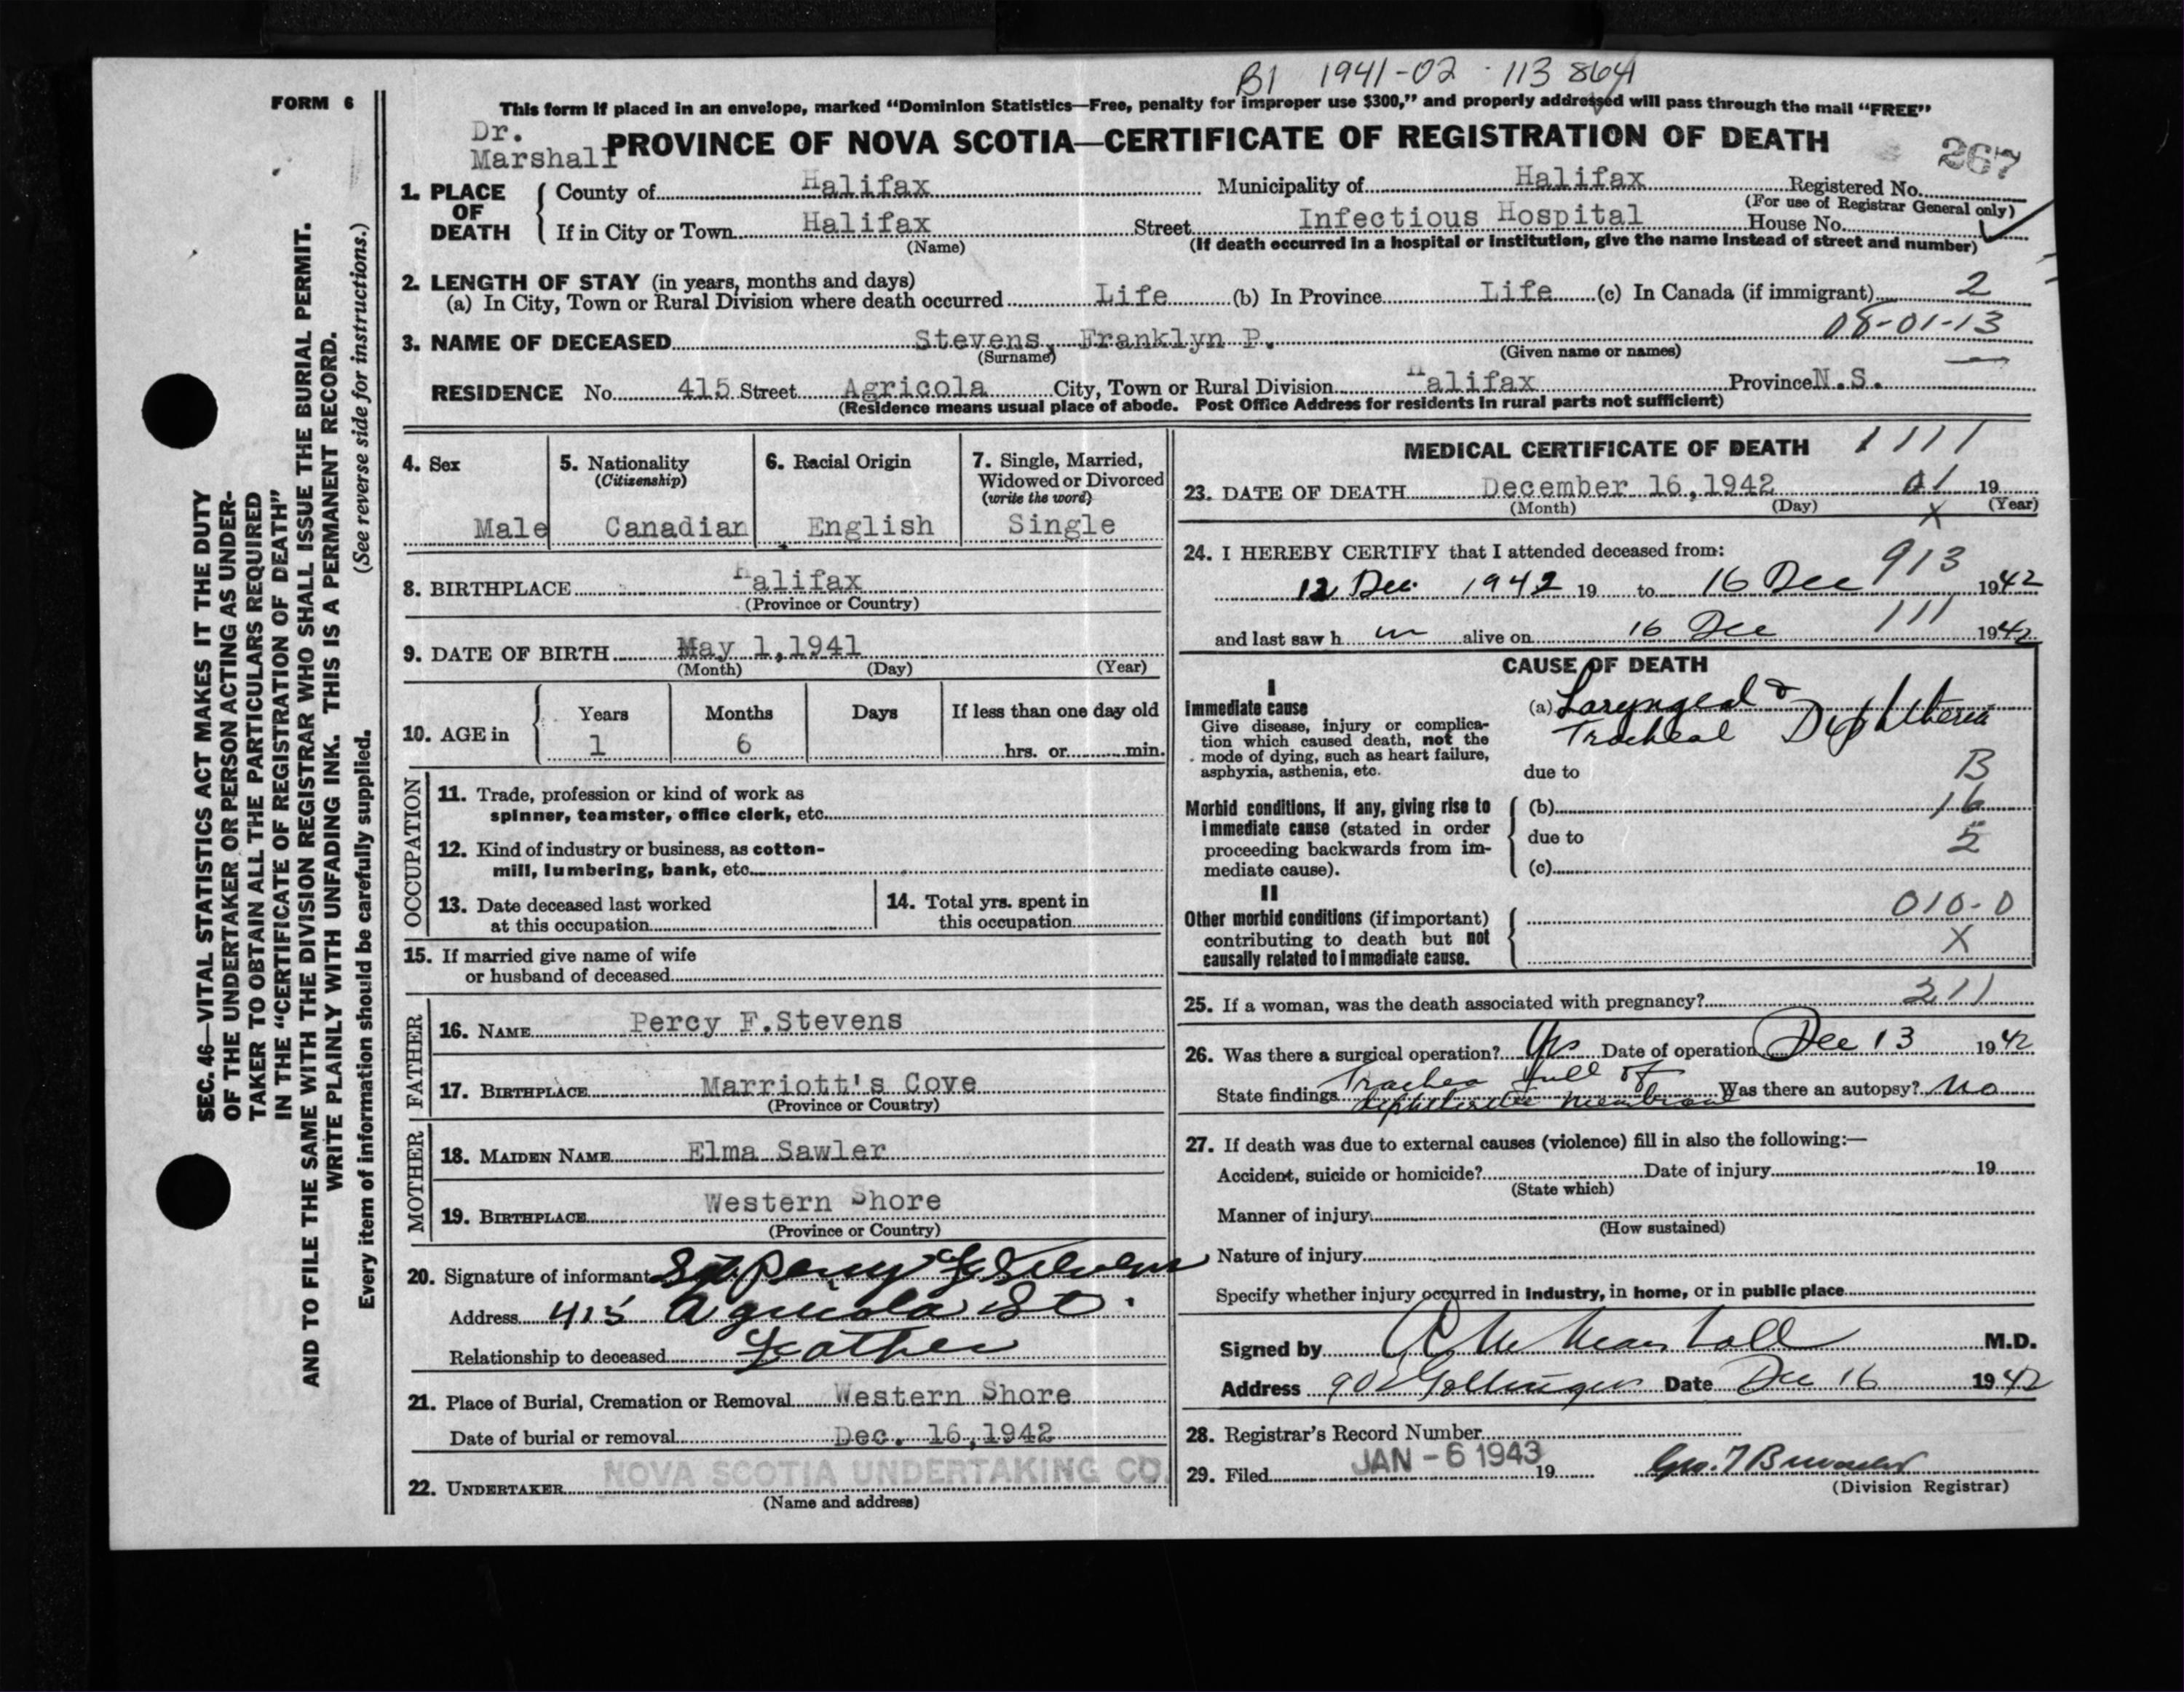 B1 1941-02-113864
FORM 6
This form if placed in an envelope, marked “Dominion Statistics—Free, penalty for improper use $300,” and properly addressed will pass through the mail “FREE”
Dr. Marshall
PROVINCE OF NOVA SCOTIA—CERTIFICATE OF REGISTRATION OF DEATH
267
1. PLACE OF DEATH
County of Halifax Municipality of Halifax Registered No.
(For use of Registrar General only)
If in City or Town Halifax Street Infectious Hospital House No.
(Name) (If death occurred in a hospital or institution, give the name instead of street and number)
2. LENGTH OF STAY (in years, months and days)
(a) In City, Town or Rural Division where death occurred Life (b) In Province Life (c) In Canada (if immigrant) 2
08-01-13
3. NAME OF DECEASED Stevens, Franklyn P.
(Surname) (Given name or names)
RESIDENCE No. 415 Street Agricola City, Town or Rural Division Halifax Province N.S.
(Residence means usual place of abode. Post Office Address for residents in rural parts not sufficient)
4. Sex
Male
5. Nationality
(Citizenship)
Canadian
6. Racial Origin
English
7. Single, Married, Widowed or Divorced
(write the word)
Single
8. BIRTHPLACE Halifax
(Province or Country)
9. DATE OF BIRTH May 1, 1941
(Month) (Day) (Year)
10. AGE in
Years Months Days If less than one day old
1 6 hrs. or min.
OCCUPATION
11. Trade, profession or kind of work as
spinner, teamster, office clerk, etc.
12. Kind of industry or business, as cotton-
mill, lumbering, bank, etc.
13. Date deceased last worked
at this occupation
14. Total yrs. spent in
this occupation
15. If married give name of wife
or husband of deceased
FATHER
16. NAME Percy F. Stevens
17. BIRTHPLACE Marriott's Cove
(Province or Country)
MOTHER
18. MAIDEN NAME Elma Sawler
19. BIRTHPLACE Western Shore
(Province or Country)
20. Signature of informant Sgt Percy F Stevens
Address 415 Agricola St.
Relationship to deceased Father
21. Place of Burial, Cremation or Removal Western Shore
Date of burial or removal Dec. 16, 1942
22. UNDERTAKER NOVA SCOTIA UNDERTAKING CO.
(Name and address)
MEDICAL CERTIFICATE OF DEATH 1111
23. DATE OF DEATH December 16, 1942 01 19
(Month) (Day) (Year)
X
24. I HEREBY CERTIFY that I attended deceased from:
913
12 Dec 1942 19 to 16 Dec 1942
111
and last saw h m alive on 16 Dec 1942
CAUSE OF DEATH
I
Immediate cause
Give disease, injury or complica-
tion which caused death, not the
mode of dying, such as heart failure,
asphyxia, asthenia, etc.
(a) Laryngeal &
Tracheal Diphtheria
due to B
Morbid conditions, if any, giving rise to
immediate cause (stated in order
proceeding backwards from im-
mediate cause).
(b) 16
due to 5
(c)
II
Other morbid conditions (if important)
contributing to death but not
causally related to immediate cause.
010-0
X
25. If a woman, was the death associated with pregnancy? 211
26. Was there a surgical operation? Yes Date of operation Dec 13 1942
State findings Trachea full of
diphtheritic membrane Was there an autopsy? No
27. If death was due to external causes (violence) fill in also the following:—
Accident, suicide or homicide? Date of injury 19
(State which)
Manner of injury
(How sustained)
Nature of injury
Specify whether injury occurred in industry, in home, or in public place
Signed by Marshall M.D.
Address Date Dec 16 1942
28. Registrar's Record Number
29. Filed JAN -6 1943 19
(Division Registrar)
SEC. 46—VITAL STATISTICS ACT MAKES IT THE DUTY
OF THE UNDERTAKER OR PERSON ACTING AS UNDER-
TAKER TO OBTAIN ALL THE PARTICULARS REQUIRED
IN THE “CERTIFICATE OF REGISTRATION OF DEATH”
AND TO FILE THE SAME WITH THE DIVISION REGISTRAR WHO SHALL ISSUE THE BURIAL PERMIT.
WRITE PLAINLY WITH UNFADING INK. THIS IS A PERMANENT RECORD.
Every item of information should be carefully supplied. (See reverse side for instructions.)